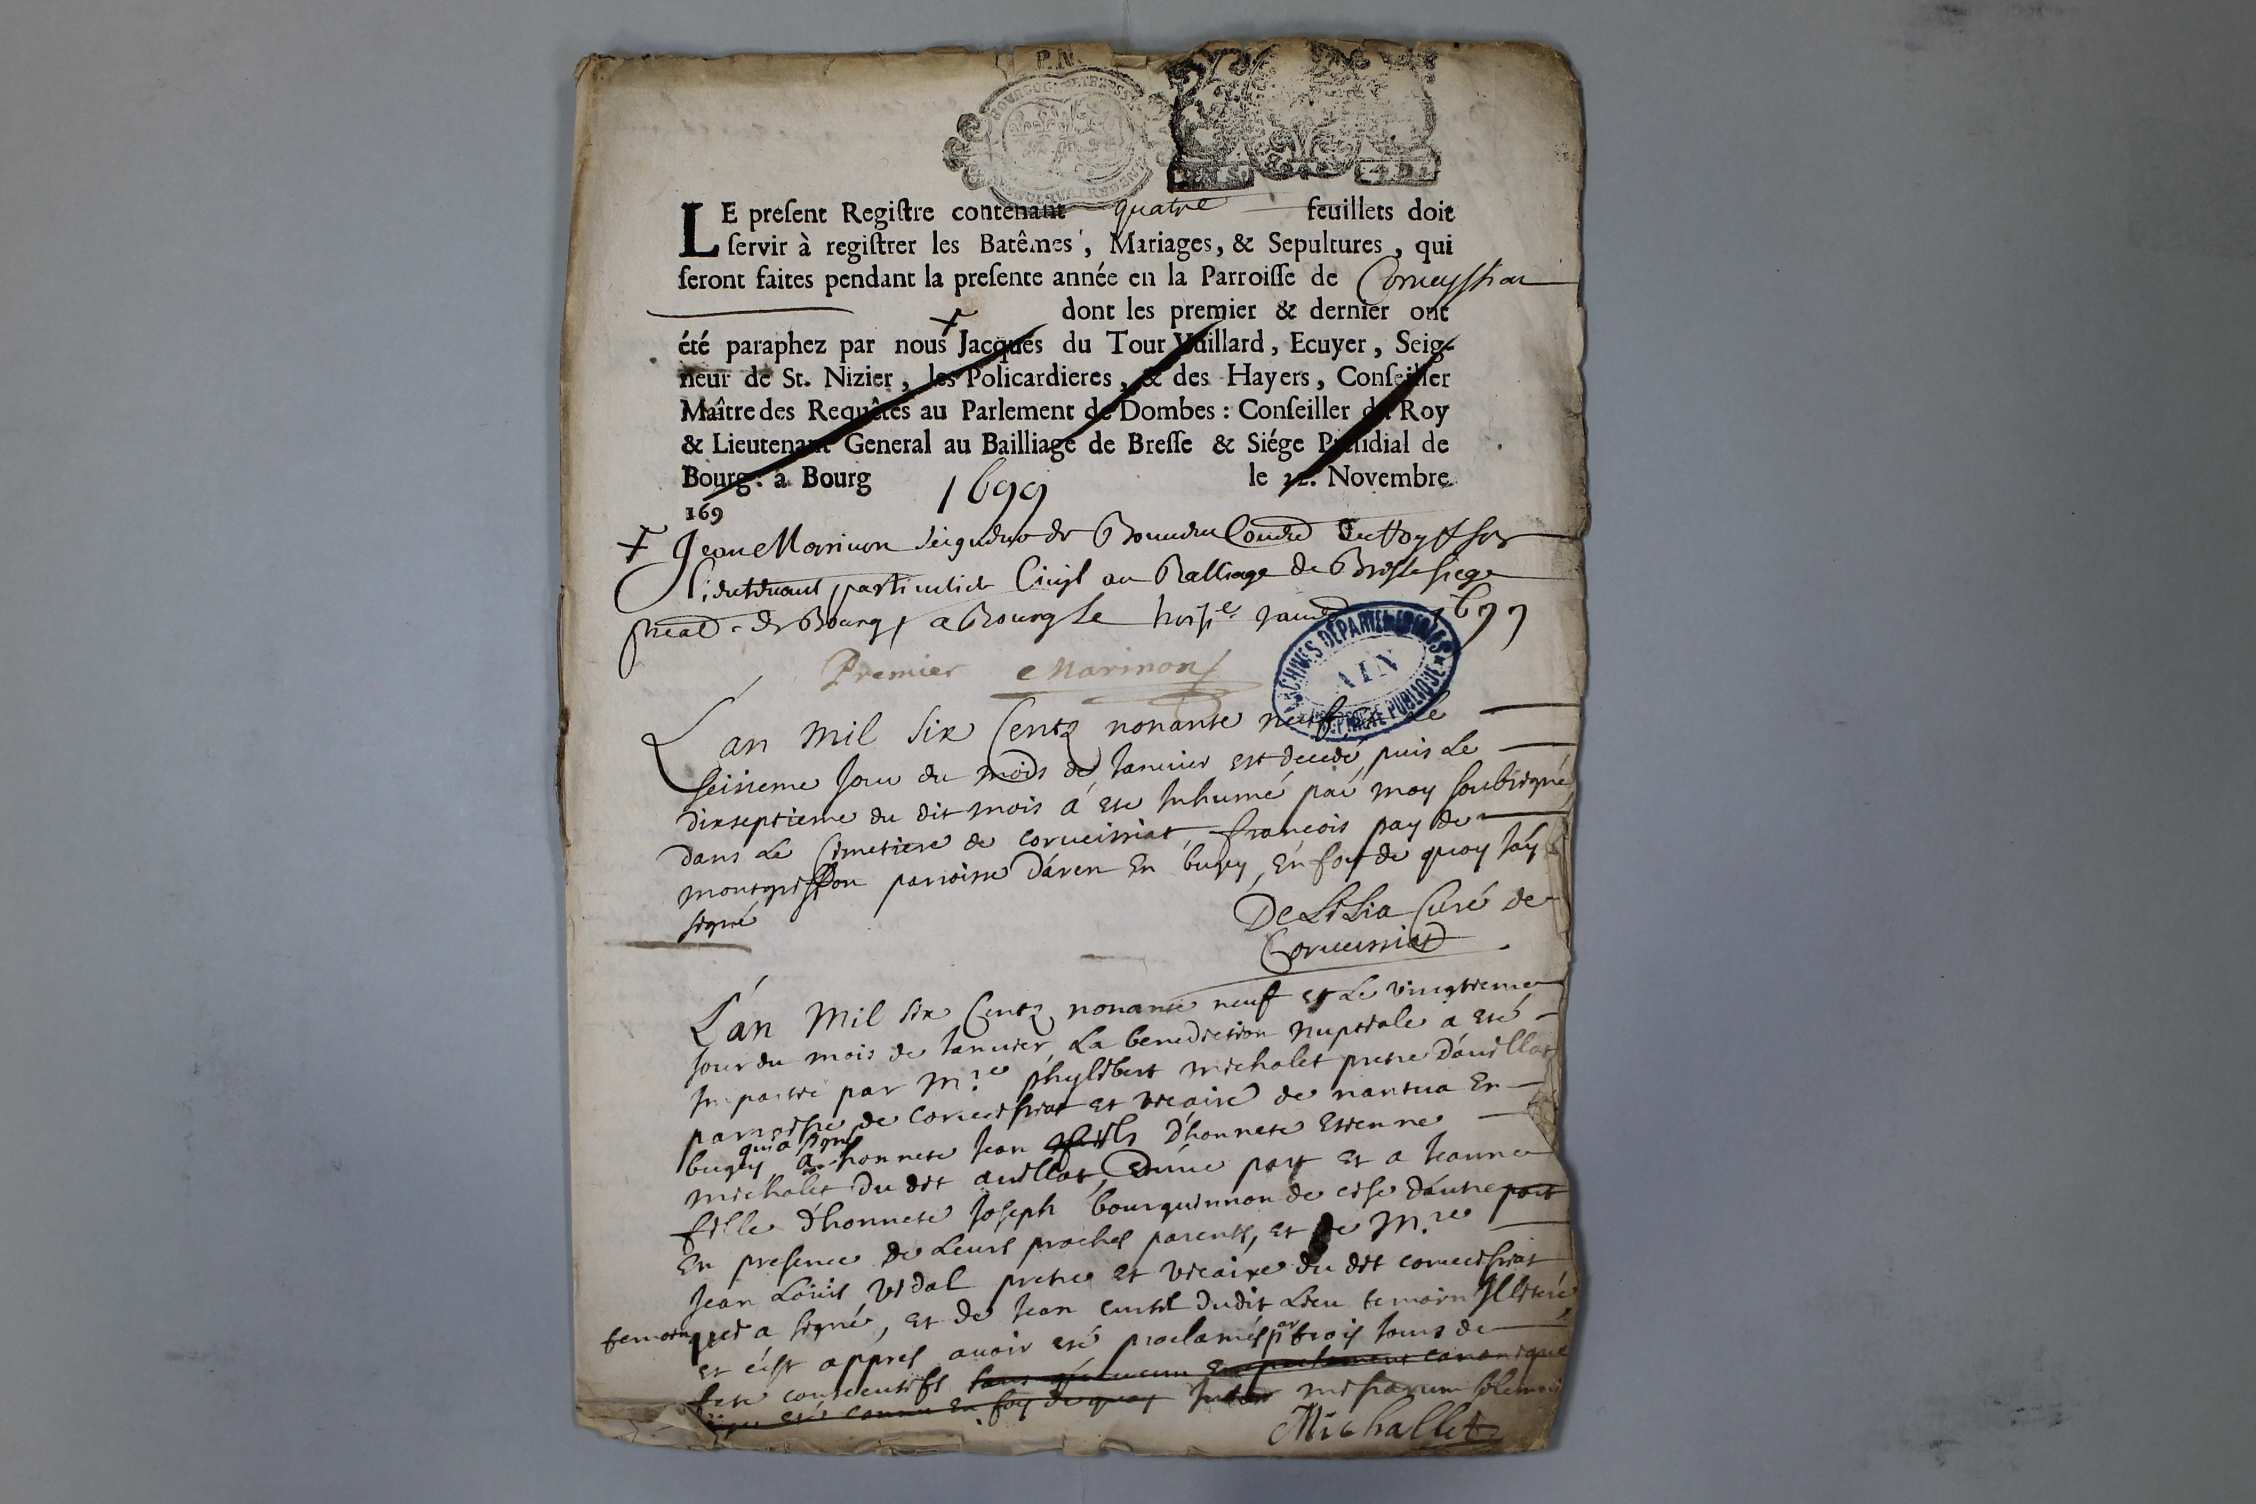 P. N.
LE preſent Regiſtre contenant quatre feuillets doit
ſervir à regiſtrer les Batêmes, Mariages, & Sepultures, qui
ſeront faites pendant la preſente année en la Parroiſſe de Corveyssia
dont les premier & dernier ont
été paraphez par nous Jacques du Tour Vuillard, Ecuyer, Seig-
neur de St. Nizier, les Policardieres, & des Hayers, Conſeiller
Maître des Requêtes au Parlement de Dombes : Conſeiller du Roy
& Lieutenant General au Bailliage de Breſſe & Siége Preſidial de
Bourg : à Bourg 1699 le 22. Novembre
169
Jean Marinon seigneur de
Lieutenant particulier Civil au Balliage de Bresse siege
de Bourg, a Bourg le 1699
ARCHIVES DEPARTEMENTALES
AIN
PROPRIETE PUBLIQUE
Premier Marinon
L'an mil six Centz nonante neuf et le
seisieme jour du mois de Janvier est decedé, puis le
dixseptieme du dit mois a eté Inhumé par moy soubsigné
dans le Cimetiere de corveissiat francois pay de
montgriffon parroisse d'aren En bugey, En foy de quoy j'ay
signé
De LiLia Curé de
Corveissiat
L'an mil six Centz nonante neuf et le vingtieme
jour du mois de Janvier la benediction nuptiale a eté
Impartie par m.re phylibert michalet pretre d'avillat
parroisse de corveissiat et vicaire de nantua En
qui a signé
bugey a honnete Jean fils d'honnete Etienne
michalet du dit avillat, d'une part et a Jeanne
fille d'honnete Joseph bourguinnon de cise d'autre part
En presence de leurs proches parents, et de m.re
Jean Louis vidal pretre et vicaire du dit corveissiat
temoin qui a signé, et de Jean curtil dudit lieu temoin Illiteré
et c'est appres avoir eté proclamés par trois jours de
fete consecutifs sans qu'aucun Enpechement canonique
eté connu En foy de quoy missarum solemnia
Michallet